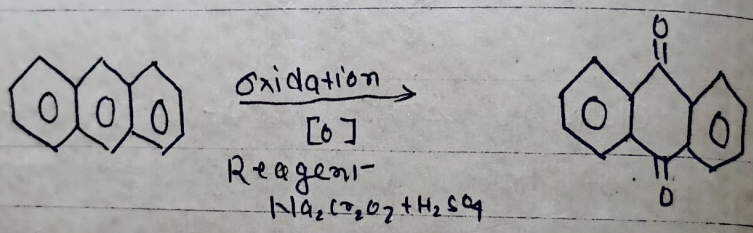 O
Oxidation
[O]
Reagent-
Na₂Cr₂O₇ + H₂SO₄
O